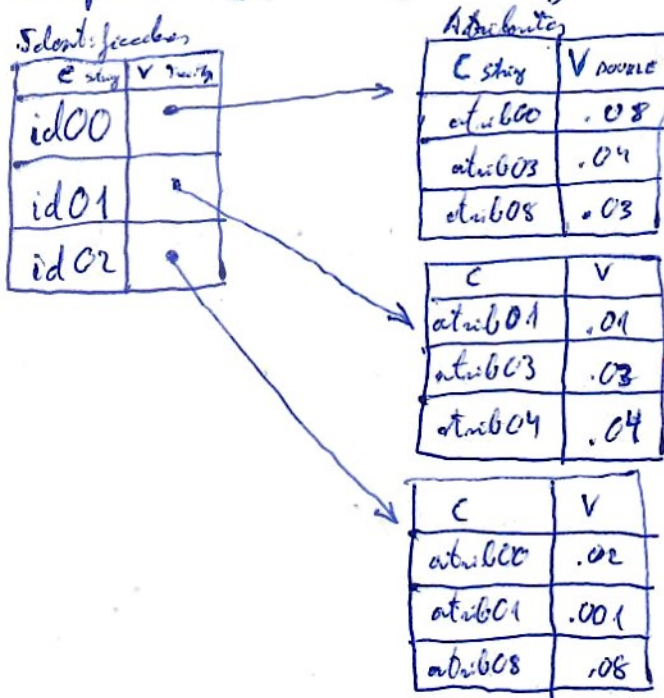 Identificadores
C string V
id00
id01
id02
Atributos
C string V DOUBLE
atrib00 .08
atrib03 .04
atrib08 .03
C V
atrib01 .01
atrib03 .03
atrib04 .04
C V
atrib00 .02
atrib01 .001
atrib08 .08